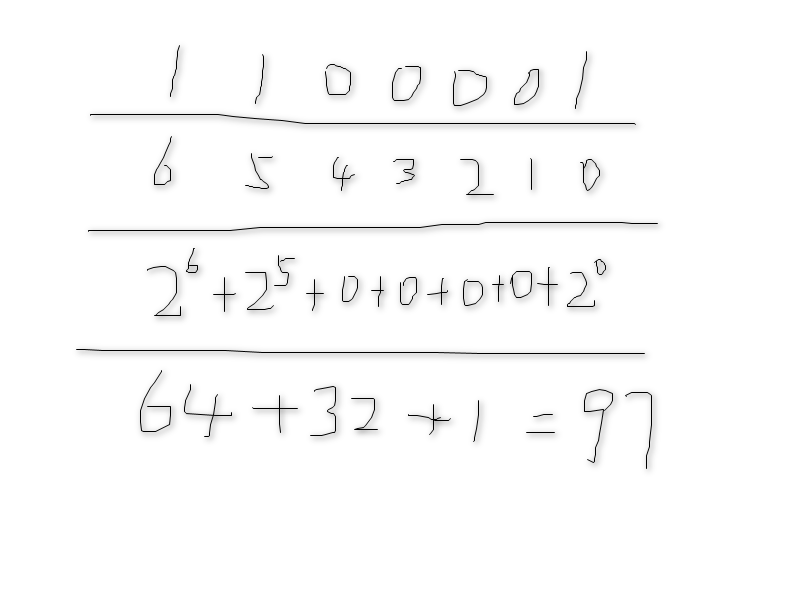 1 1 0 0 0 0 1
6 5 4 3 2 1 0
2⁶+2⁵+0+0+0+0+2⁰
64+32+1=97